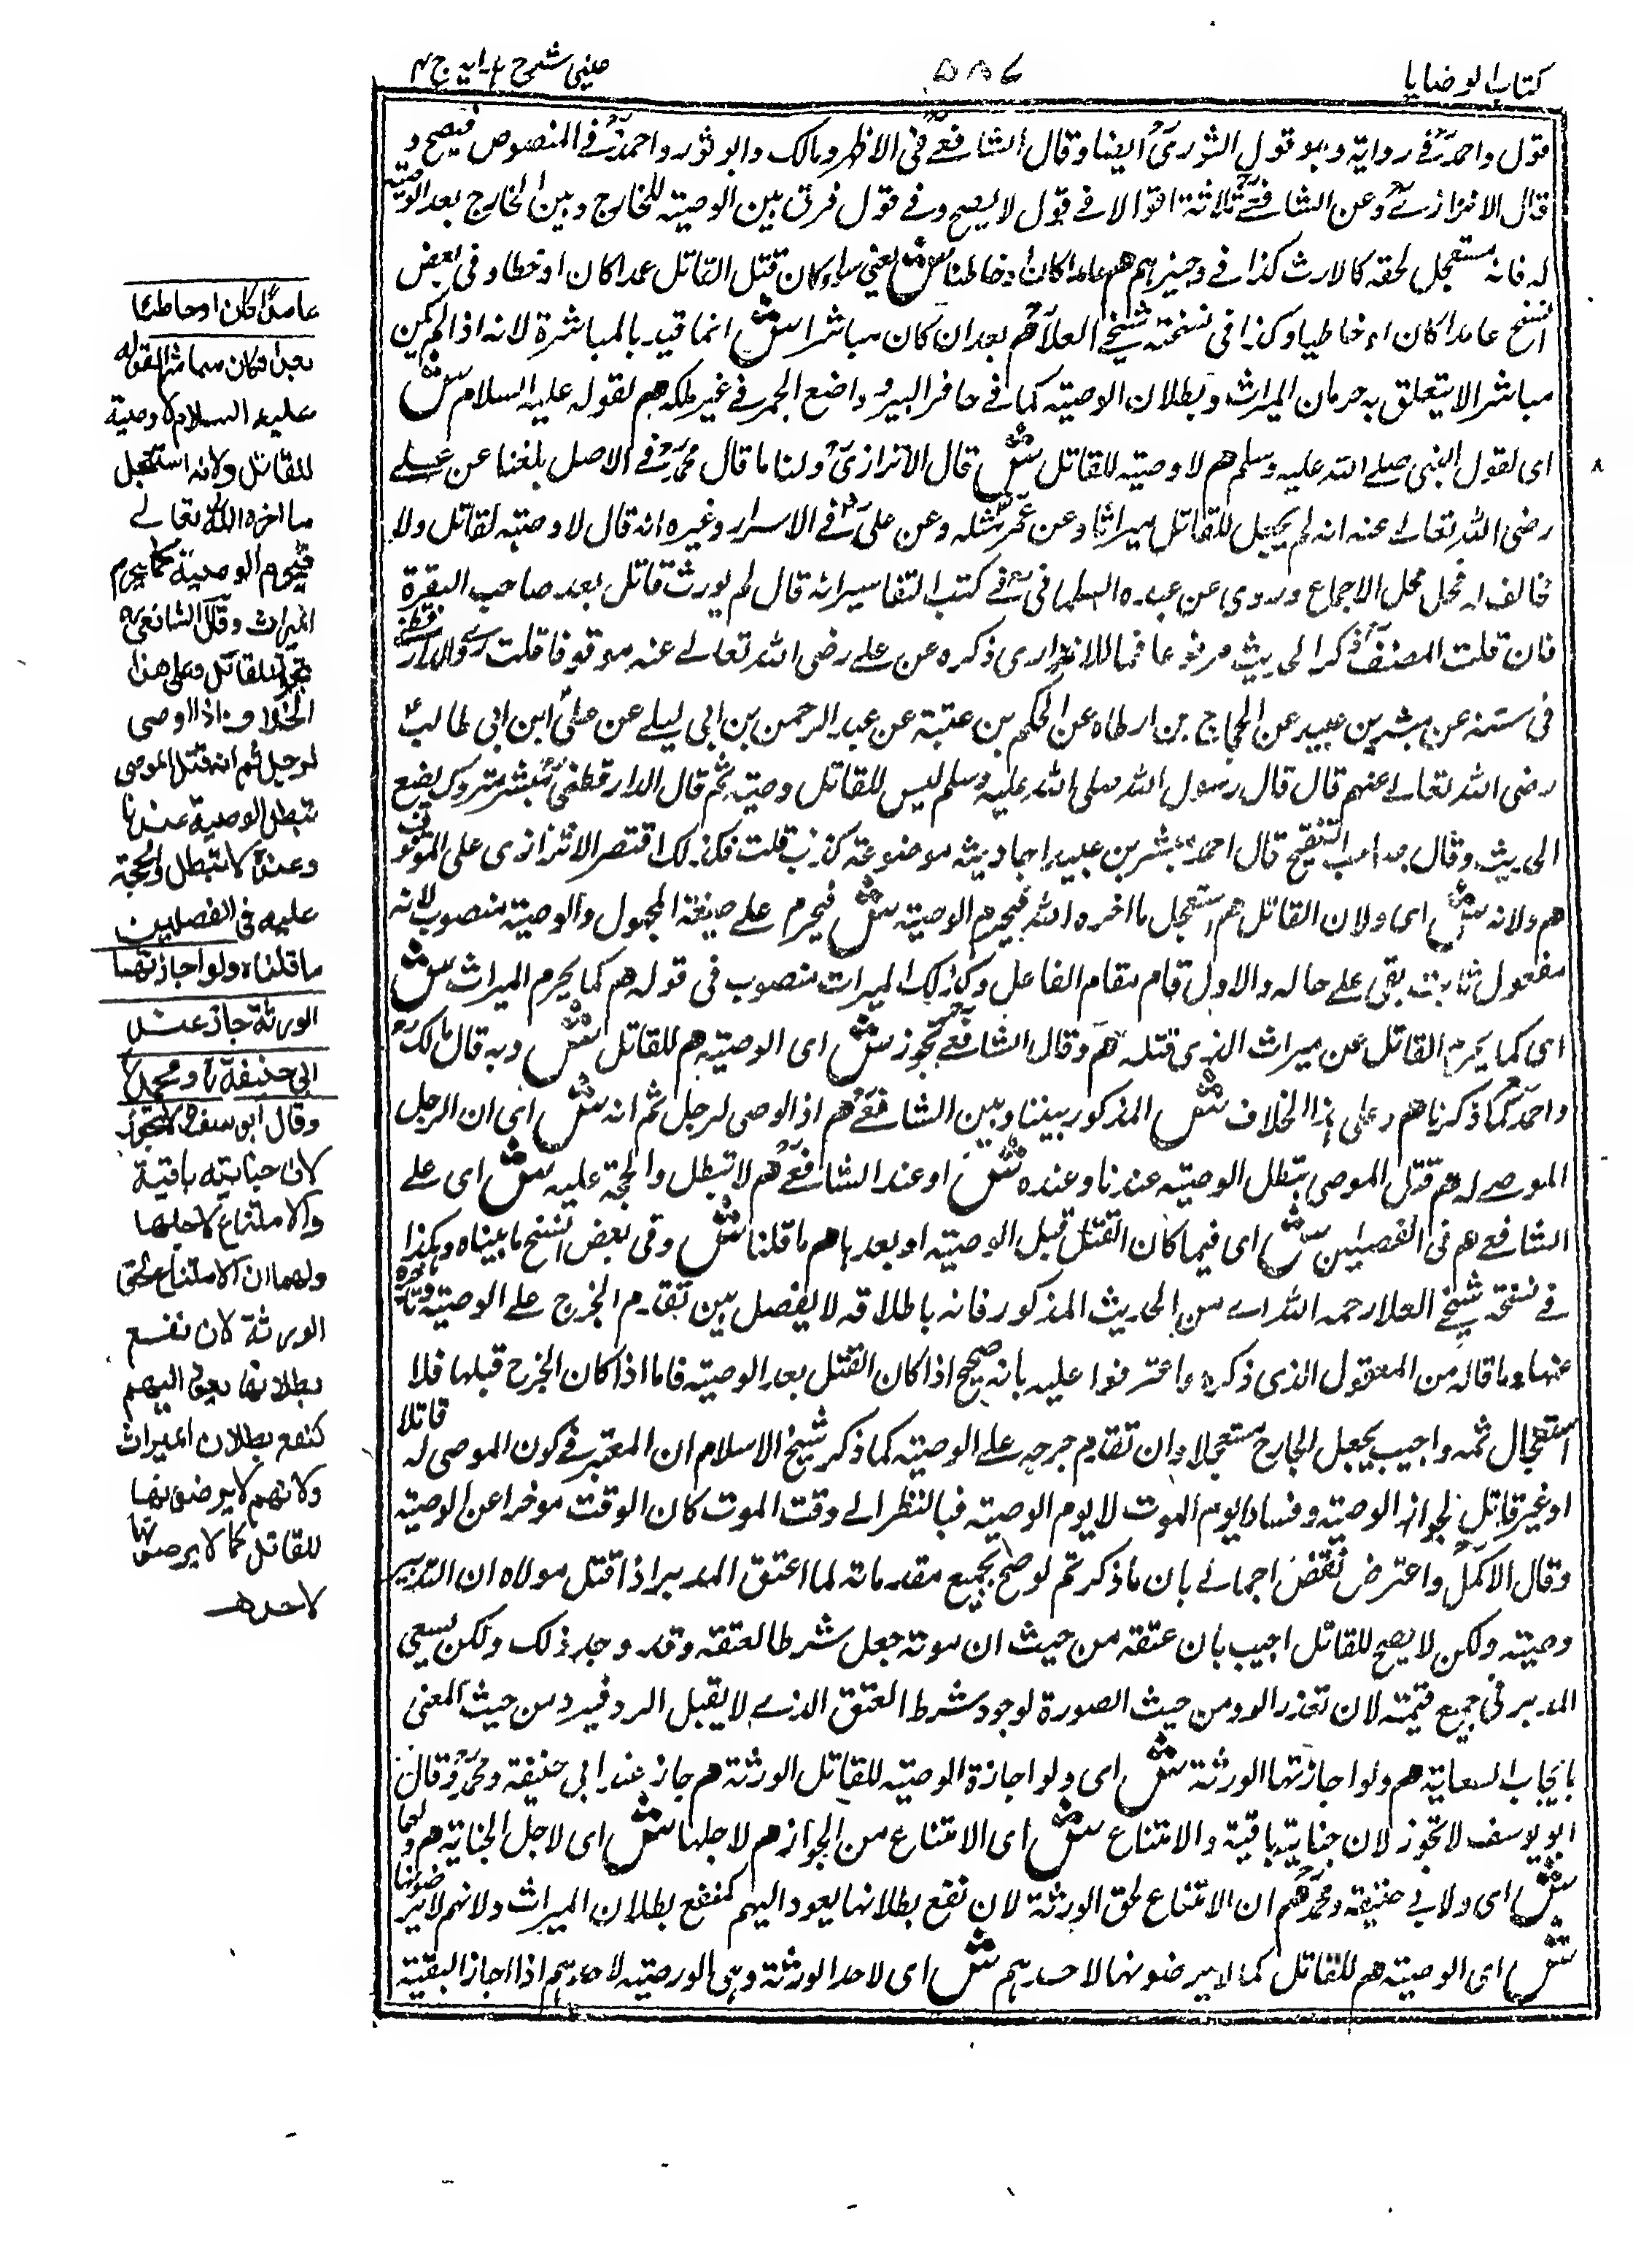 كتاب الوصايا
٥٨٤
عينى شرح هدايه ج ٣
قول واحمدؒ فے رواية وهو قول الثورىؒ ايضا وقال الشافعےؒ فى الاظهر ومالك وابو ثور واحمدؒ فے المنصوص فيصح و
قال الاترازىؒ وعن الشافعےؒ ثلاثة اقوالا فے قول لا يصح وفے قول فرق بين الوصية للخارج وبين الخارج بعد الوصية
له فانه مستعجل لحقه كالارث كذا فے وجيزهم هم عامدا كان او خاطئا ش يعنى سواء كان قتل القاتل عمدا كان او خطأ وفى بعض
النسخ عامدا كان او خاطيا وكذا فى نسخة شيخے العلاؒ هم بعد ان كان مباشرا ش انما قيد بالمباشرة لانه اذا لم يكن
مباشرا لا يتعلق به حرمان الميراث وبطلان الوصية كما فے حافر البير وواضع الحجر فے غير ملكه هم لقوله عليه السلام ش
اى لقول النبى صلے الله عليه وسلم هم لا وصية للقاتل ش قال الاترازىؒ ولنا ما قال محمدؒ فے الاصل بلغنا عن علے
رضى الله تعالے عنه انه لم يجعل للقاتل ميراثا وعن عمرؓ مثله وعن علىؓ فے الاسرار وغيره انه قال لا وصية لقاتل ولا
مخالف له فحل محل الاجماع وروى عن عبده السلمانى فے كتب التفاسير انه قال لم يورث قاتل بعد صاحب البقرة
فان قلت المصنفؒ ذكر الحديث مرفوعا فما للاترازى ذكره عن علے رضى الله تعالے عنه موقوفا قلت رواه الدارقطنے
فى سننه عن مبشر بن عبيد عن الحجاج بن ارطاه عن الحكم بن عتبة عن عبد الرحمن بن ابى ليلے عن علىؓ ابن ابى طالب
رضى الله تعالے عنهم قال قال رسول الله صلى الله عليه وسلم ليس للقاتل وصية ثم قال الدارقطنىؒ مبشر متروك يضع
الحديث وقال صاحب التنقيح قال احمدؒ مبشر بن عبيد احاديثه موضوعة كذب قلت فكذلك اقتصر الاترازى على الموقوف
هم ولانه ش اى ولان القاتل هم استعجل ما اخره الله فيحرم الوصية ش فيحرم علے صيغة المجهول والوصية منصوب لانه
مفعول ثان بقى علے حاله والاول قام مقام الفاعل وكذلك الميراث منصوب فى قوله هم كما يحرم الميراث ش
اى كما يحرم القاتل عن ميراث الذى قتله هم وقال الشافعےؒ تجوز ش اى الوصية هم للقاتل ش وبه قال مالكؒ
واحمدؒ كما ذكرنا هم وعلى هذا الخلاف ش المذكور بيننا وبين الشافعےؒ هم اذا اوصى لرجل ثم انه ش اى ان الرجل
الموصے له هم قتل الموصى تبطل الوصية عندنا وعنده ش او عند الشافعےؒ هم لا تبطل والحجة عليه ش اى علے
الشافعے هم فى الفصلين ش اى فيما كان القتل قبل الوصية او بعدها هم ما قلنا ش وفى بعض النسخ ما بيناه وهكذا
فے نسخة شيخے العلا رحمه الله اے من الحديث المذكور فانه باطلاقه لا يفصل بين تقدم الجرح علے الوصية وتاخره
عنها وما قاله من المعقول الذى ذكره واعترضوا عليه بانه صحيح اذا كان القتل بعد الوصية فاما اذا كان الجرح قبلها فلا
استعجال ثمه واجيب بجعل الجارح مستعجلا وان تقدم جرحه علے الوصية كما ذكر شيخ الاسلام ان المعتبر فے كون الموصى له قاتلا
او غير قاتل لجواز الوصية وفسادها يوم الموت لا يوم الوصية فبالنظر الے وقت الموت كان الوقت موخرا عن الوصية
وقال الاكملؒ واعترض بنقض اجمالے بان ما ذكرتم لو صح بجميع مقدماته لما اعتق المدبر اذا قتل مولاه ان التدبير
وصية ولكن لا يصح للقاتل اجيب بان عتقه من حيث ان موته جعل شرطا لعتقه وقد وجد ذلك ولكن يسعى
المدبر فى جميع قيمته لان تعذر الرد من حيث الصورة لوجود شرط العتق الذے لا يقبل الرد فيرد من حيث المعنى
بايجاب السعاية هم ولو اجازتها الورثة ش اى ولو اجازة الوصية للقاتل الورثة هم جاز عند ابى حنيفة ومحمدؒ وقال
ابو يوسف لا تجوز لان جنايته باقية والامتناع ش اى الامتناع من الجواز هم لاجلها ش اى لاجل الجناية هم ولهما
ش اى ولابى حنيفة ومحمدؒ هم ان الامتناع لحق الورثة لان نفع بطلانها يعود اليهم كنفع بطلان الميراث ولانهم لا يرضونها
ش اى الوصية هم للقاتل كما لا يرضونها لاحدهم ش اى لاحد الورثة وهى الوصية لاحدهم اذا اجاز البقية
عامدا كان او خاطئا
بعد ان كان مباشرا لقوله
عليه السلام لا وصية
للقاتل ولانه استعجل
ما اخره الله تعالے
فيحرم الوصية كما يحرم
الميراث وقال الشافعىؒ
تجوز للقاتل وعلى هذا
الخلاف اذا اوصى
لرجل ثم انه قتل الموصى
تبطل الوصية عندنا
وعنده لا تبطل والحجة
عليه فى الفصلين
ما قلناه ولو اجازتها
الورثة جاز عند
ابى حنيفةؒ ومحمدؒ
وقال ابو يوسفؒ لا تجوز
لان جنايته باقية
والامتناع لاجلها
ولهما ان الامتناع لحق
الورثة لان نفع
بطلانها يعود اليهم
كنفع بطلان الميراث
ولانهم لا يرضونها
للقاتل كما لا يرضونها
لاحدهم